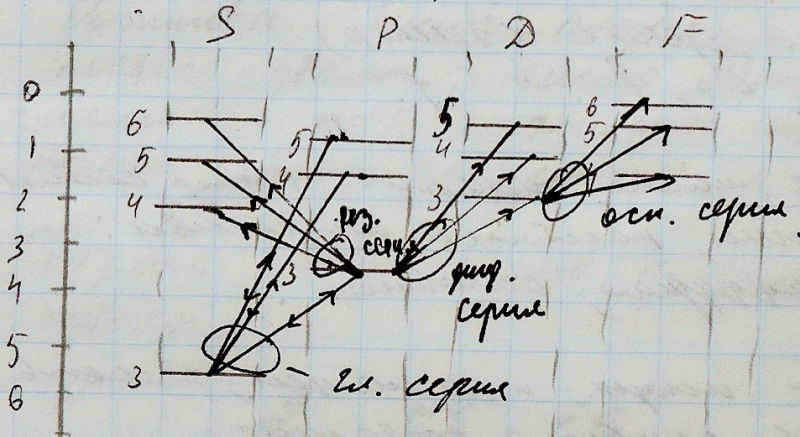 S P D F
0
6 5 6
1 5 4 5
5 4
2 4 3
рез.
серия
осн. серия
3
3
4 диф.
серия
5
3 – гл. серия
6